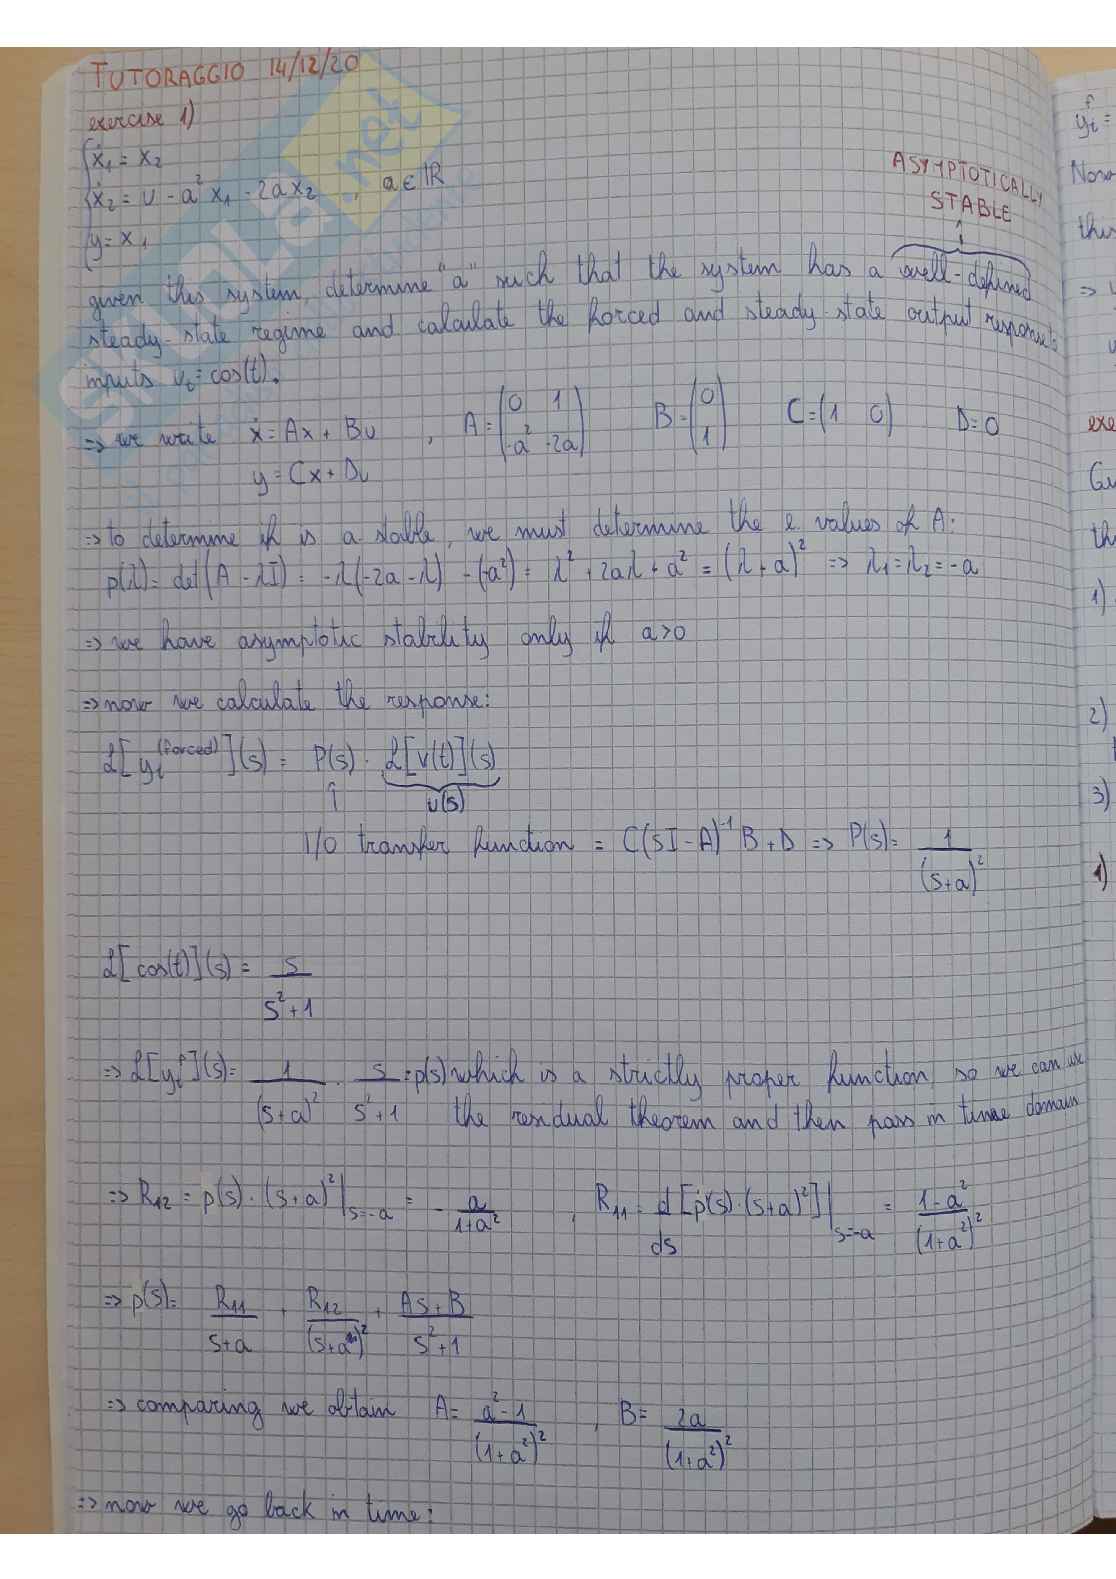 TUTORAGGIO 14/12/20
exercise 1)
ẋ₁ = x₂
ẋ₂ = u - a² x₁ - 2a x₂ , a ∈ ℝ
y = x₁
ASYMPTOTICALLY
STABLE
given this system, determine "a" such that the system has a well-defined
steady-state regime and calculate the forced and steady-state output response
inputs u_t = cos(t).
⇒ we write ẋ = Ax + Bu , A = (0 1; -a² -2a) B = (0; 1) C = (1 0) D = 0
y = Cx + Du
⇒ to determine if is a stable, we must determine the e. values of A:
p(λ) = det(A - λI) = -λ(-2a - λ) - (-a²) = λ² + 2aλ + a² = (λ + a)² ⇒ λ₁ = λ₂ = -a
⇒ we have asymptotic stability only if a > 0
⇒ now we calculate the response:
ℒ[y_t^(forced)](s) = P(s) · ℒ[u(t)](s)
↑ u(s)
I/O transfer function = C(sI - A)⁻¹ B + D ⇒ P(s) = 1/(s+a)²
ℒ[cos(t)](s) = s/(s²+1)
⇒ ℒ[y_t^f](s) = 1/(s+a)² · s/(s²+1) = p(s) which is a strictly proper function so we can use
the residual theorem and then pass in time domain
⇒ R₁₂ = p(s) · (s+a)² |s=-a = - a/(1+a²) , R₁₁ = d/ds [p(s) · (s+a)²] |s=-a = (1-a²)/(1+a²)²
⇒ p(s) = R₁₁/(s+a) + R₁₂/(s+a)² + (As+B)/(s²+1)
⇒ comparing we obtain A = (a²-1)/(1+a²)² , B = 2a/(1+a²)²
⇒ now we go back in time:
y_t^f =
Now
⇒
exe
1)
2)
3)
1)
SKUOLA.net